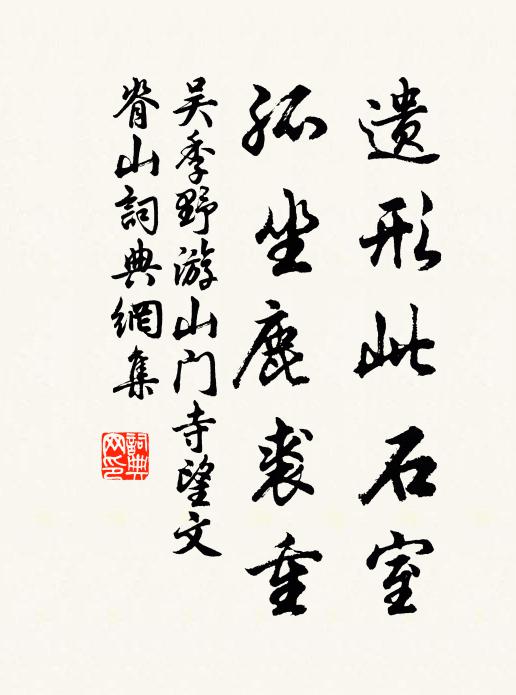 遗形此石室
孤坐鹿裘重
吴季野游山门寺望文
脊山詞典網集
詞典
网印